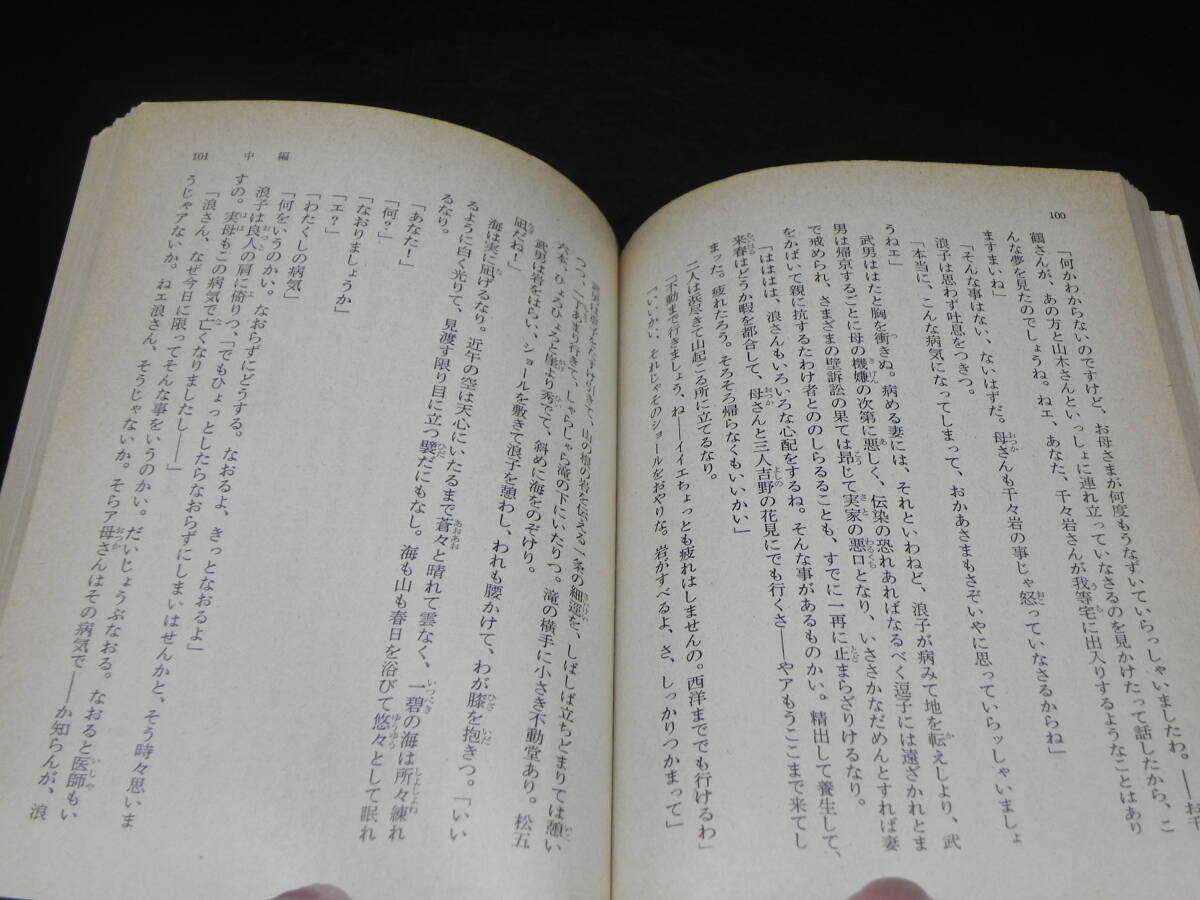 100
「何かわからないのですけど、お母さまが何度もうなずいていらっしゃいましたわ。――お千
鶴さんが、あの方と山木さんといっしょに連れ立っていなさるのを見かけたって話したから、こ
んな夢を見たのでしょうね。ねェ、あなた、千々岩さんが我等宅に出入りするようなことはあり
ますまいね」
「そんな事はない、ないはずだ。母さんも千々岩の事じゃ怒っていなさるからね」
浪子は思わず吐息をつきつ。
「本当に、こんな病気になってしまって、おかあさまもさぞいやに思っていらッしゃいましょ
うねェ」
武男ははたと胸を衝きぬ。病める妻には、それといわねど、浪子が病みて地を転えしより、武
男は帰京するごとに母の機嫌の次第に悪しく、伝染の恐れあればなるべく逗子には遠ざかれとま
で戒められ、さまざまの壁訴訟の果ては昂じて実家の悪口となり、いささかなだめんとすれば妻
をかばいて親に抗するたわけ者とののしらるることも、すでに一再に止まらざりけるなり。
「ははははは、浪さんもいろいろな心配をするね。そんな事があるものかい。精出して養生して、
来春はどうか暇を都合して、母さんと三人吉野の花見にでも行くさ――やアもうここまで来てし
まった。疲れたろう。そろそろ帰らなくもいいかい」
二人は浜尽きて山起こる所に立てるなり。
「不動まで行きましょう、ね――イイエちょっとも疲れはしませんの。西洋まででも行けるわ」
「いいかい、それじゃそのショールをおやりな。岩がすべるよ、さ、しっかりつかまって」
101 中編
武男は浪子をたすけ引きて、山の根の岩を伝える一条の細逕を、しばしば立ちどまりては憩い
つつ、一丁あまり行きて、しゃらしゃら滝の下にいたりつ。滝の横手に小さき不動堂あり。松五
六本、ひょろひょろと崖より秀でて、斜めに海をのぞけり。
武男は岩をはらい、ショールを敷きて浪子を憩わし、われも腰かけて、わが膝を抱きつ。「いい
凪だね！」
海は実に凪げるなり。近午の空は天心にいたるまで蒼々と晴れて雲なく、一碧の海は所々練れ
るように白く光りて、見渡す限り目に立つ襞だにもなし。海も山も春日を浴びて悠々として眠れ
るなり。
「あなた！」
「何？」
「なおりましょうか」
「エ？」
「わたくしの病気」
「何をいうのかい。なおらずにどうする。なおるよ、きっとなおるよ」
浪子は良人の肩に倚りつ、「でもひょっとしたらなおらずにしまいはせんかと、そう時々思いま
すの。実母もこの病気で亡くなりましたし――」
「浪さん、なぜ今日に限ってそんな事をいうのかい。だいじょうぶなおる。なおると医師もい
うじゃアないか。ねェ浪さん、そうじゃないか。そらア母さんはその病気で――か知らんが、浪